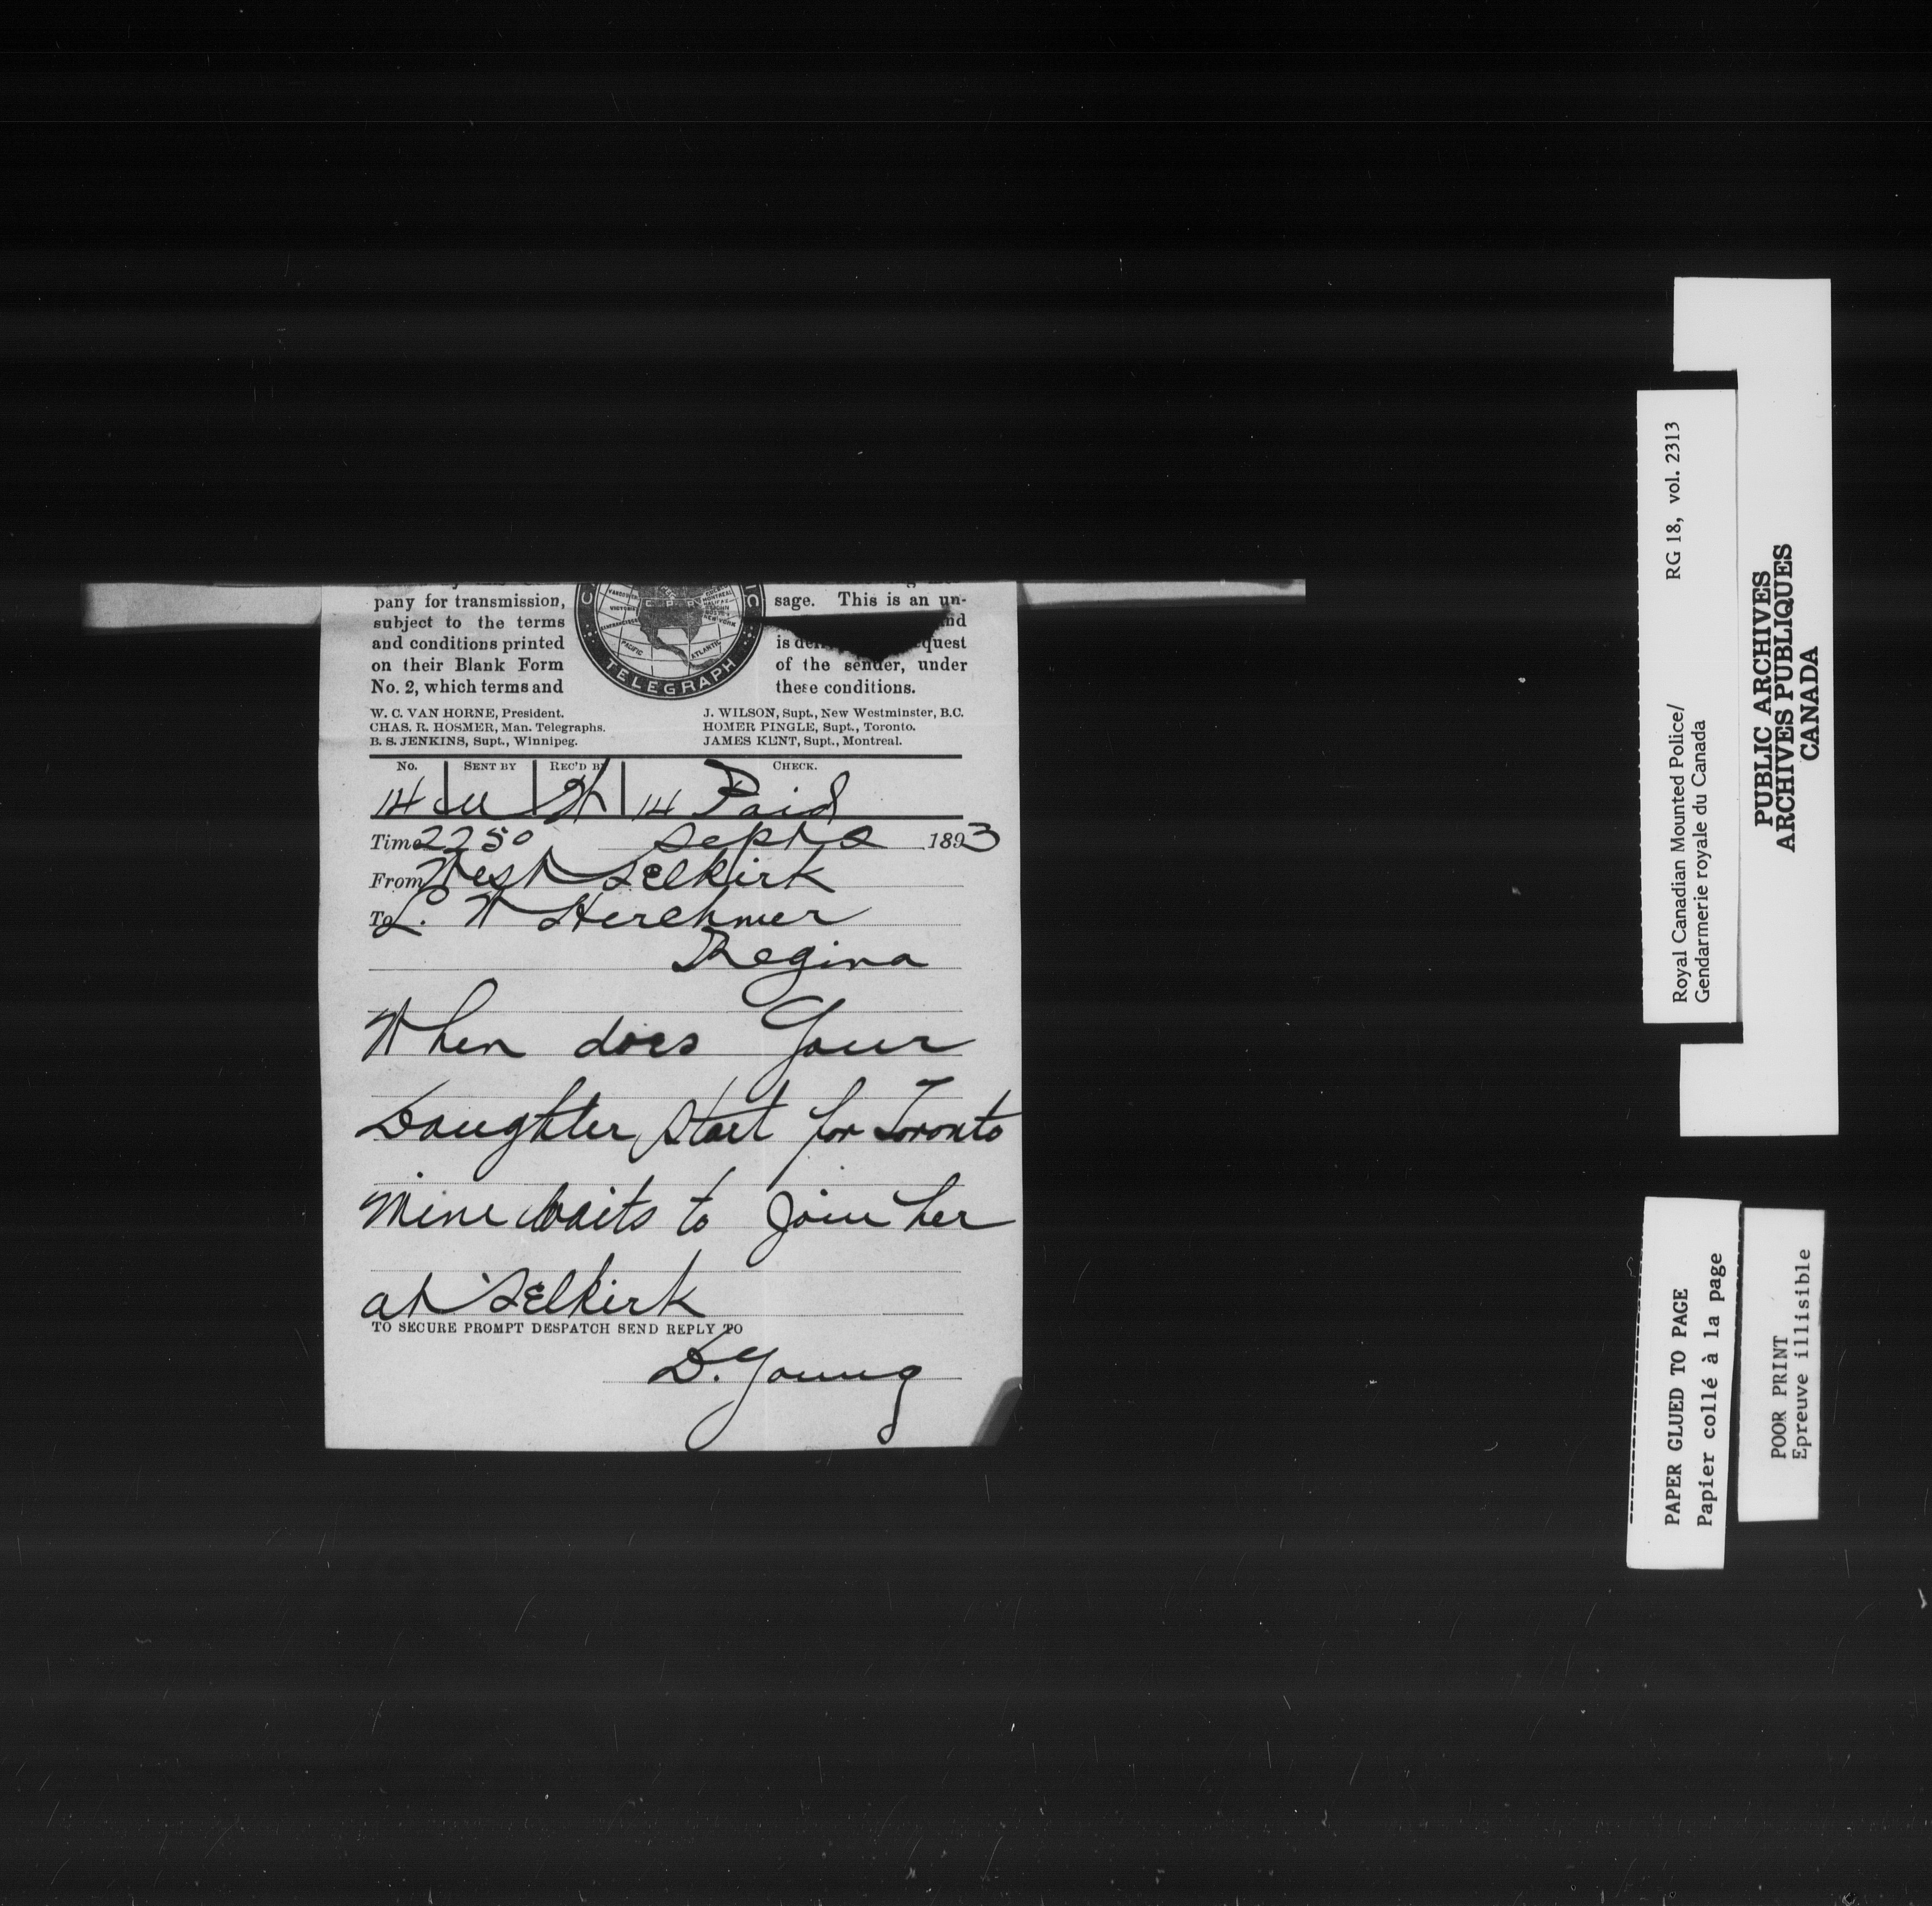 pany for transmission,
subject to the terms
and conditions printed
on their Blank Form
No. 2, which terms and
TELEGRAPH
sage. This is an un-
nd
is quest
of the sender, under
these conditions.
W. C. VAN HORNE, President.
CHAS. R. HOSMER, Man. Telegraphs.
B. S. JENKINS, Supt., Winnipeg.
J. WILSON, Supt., New Westminster, B.C.
HOMER PINGLE, Supt., Toronto.
JAMES KENT, Supt., Montreal.
No. SENT BY REC'D BY CHECK.
14 14 Paid
Time 2250 Sept 2 1893
From West Selkirk
To L. W Herchmer
Regina
When does Your
Daughter start for Toronto
Mine waits to Join her
at Selkirk
TO SECURE PROMPT DESPATCH SEND REPLY TO
D. Young
Royal Canadian Mounted Police/ RG 18, vol. 2313
Gendarmerie royale du Canada
PUBLIC ARCHIVES
ARCHIVES PUBLIQUES
CANADA
PAPER GLUED TO PAGE
Papier collé à la page
POOR PRINT
Epreuve illisible